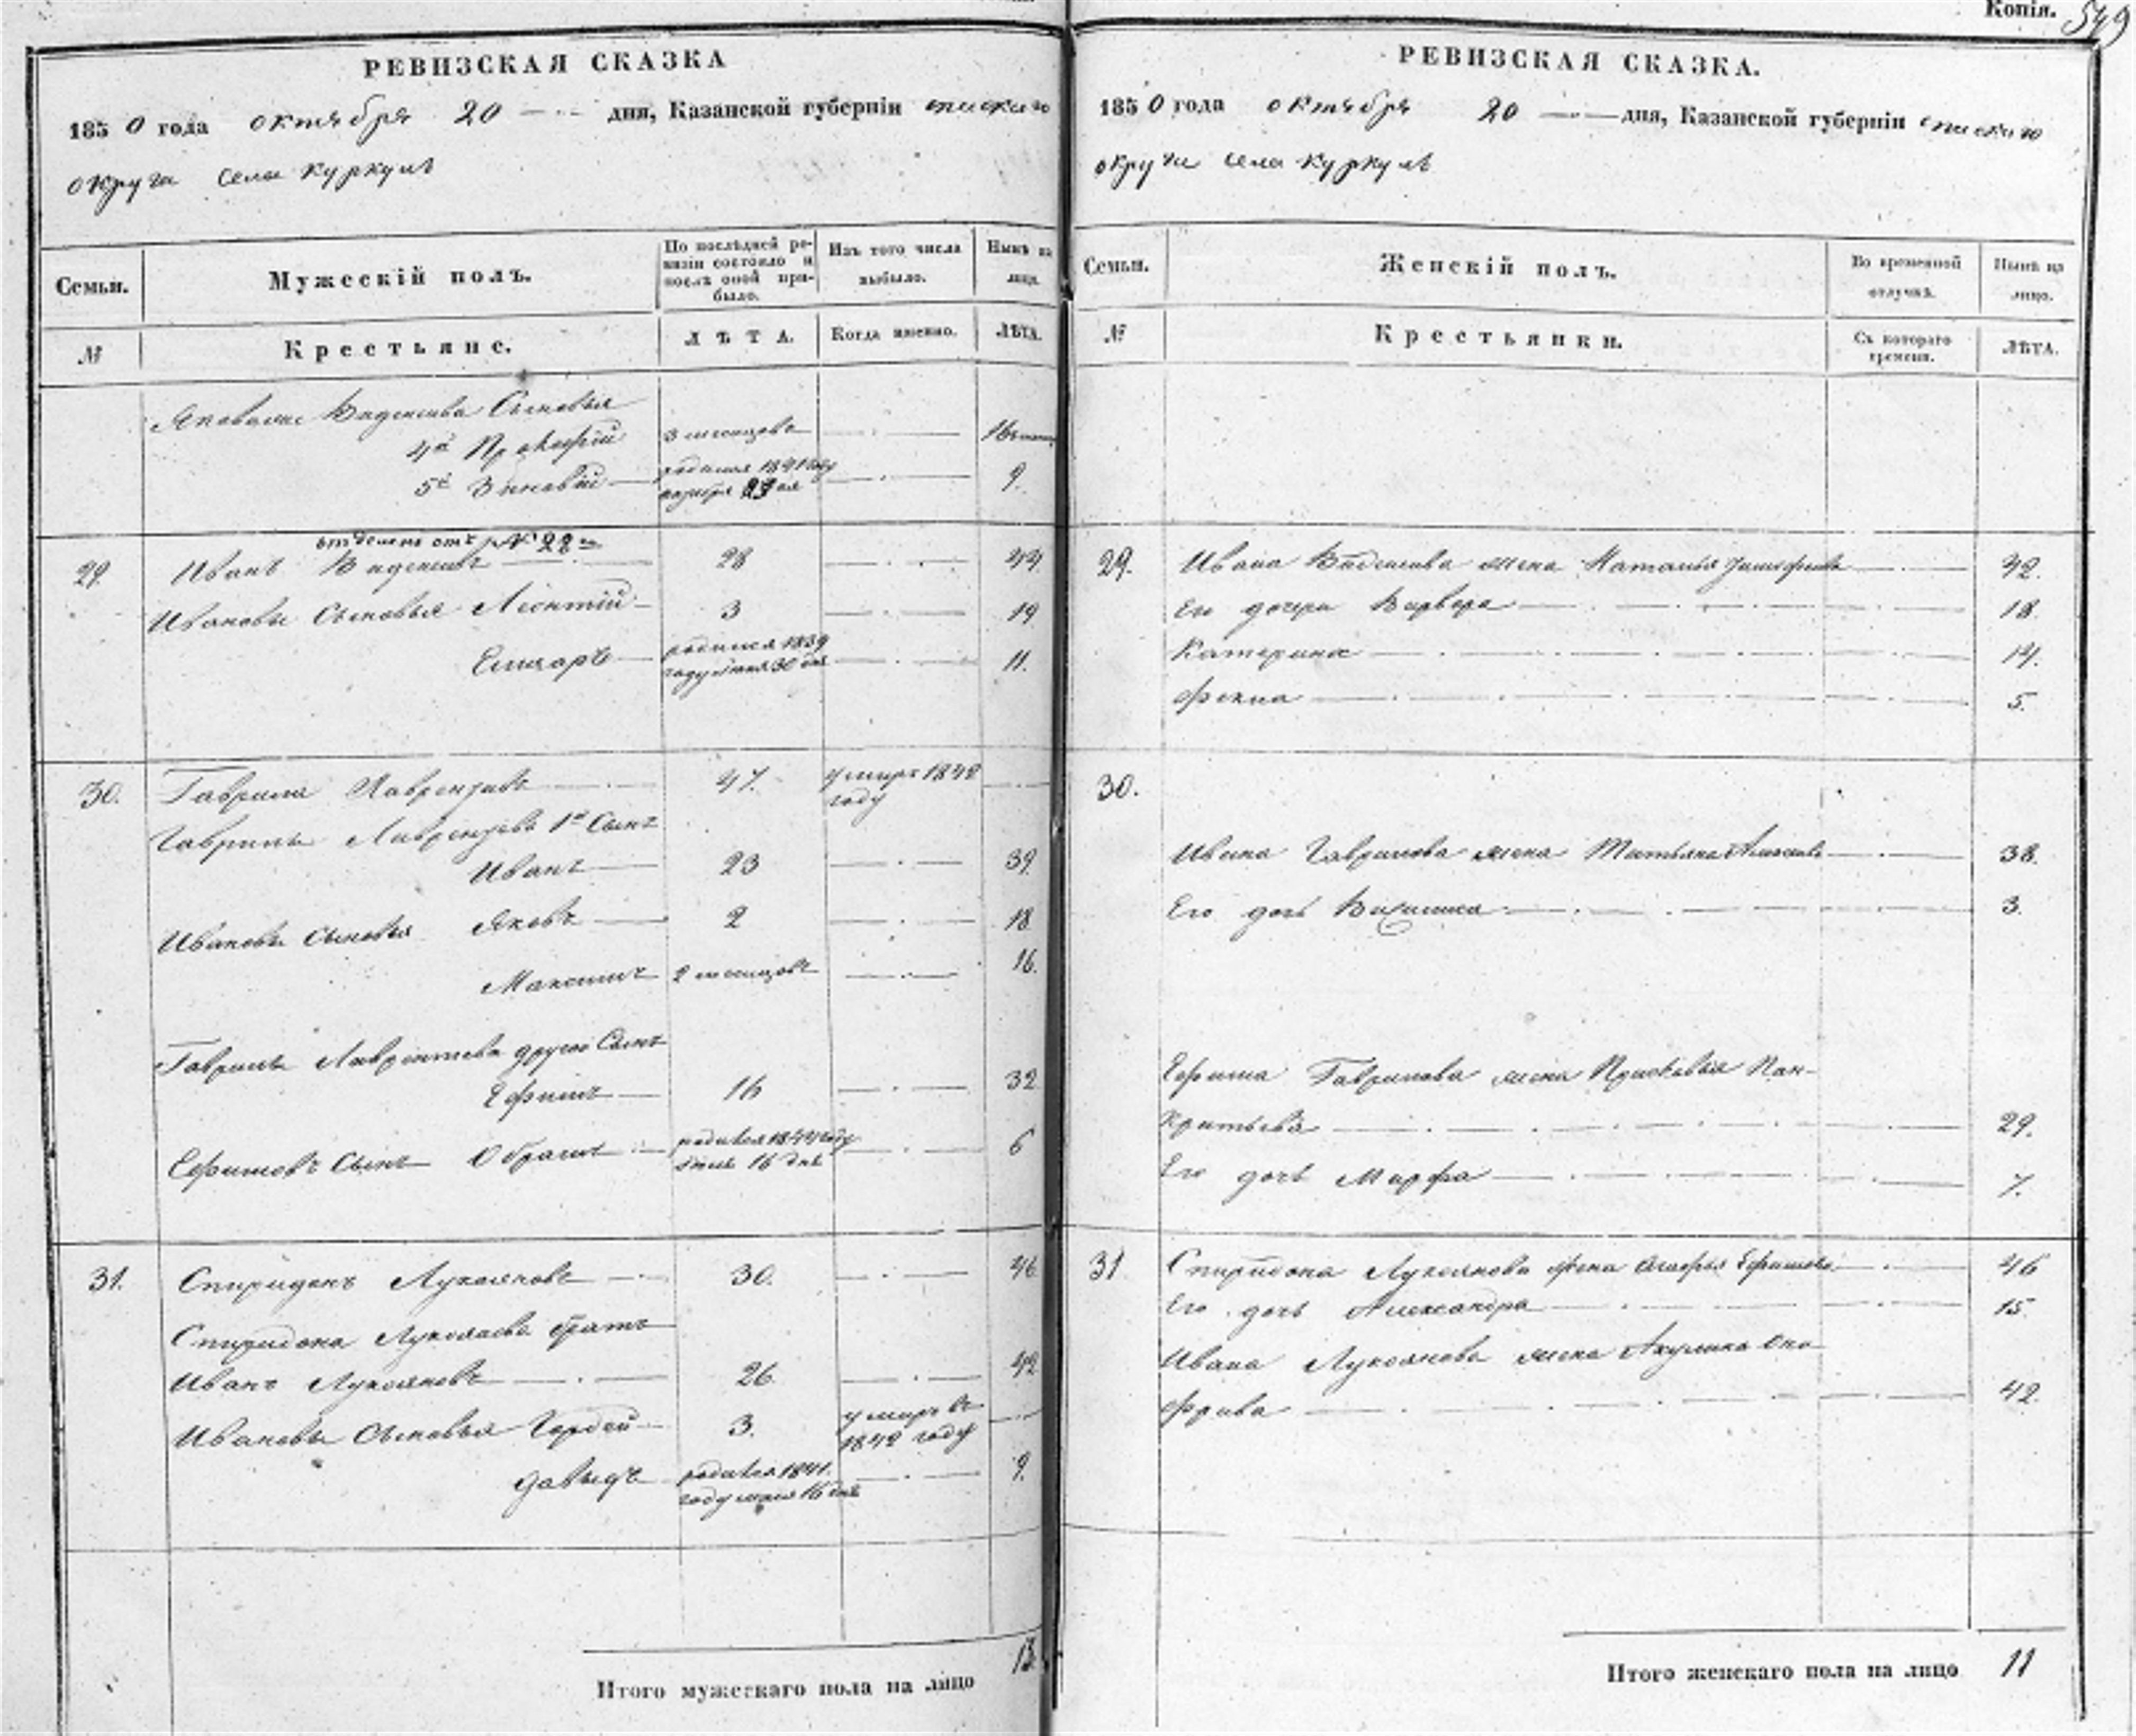 РЕВИЗСКАЯ СКАЗКА
1850 года октября 20 дня, Казанской губерніи спаскаго
округа села Куркулѣ
Семьи.
Мужескій полъ.
По послѣдней ре-
визіи состояло и
послѣ оной при-
было.
Изъ того числа
выбыло.
Нынѣ на
лицо.
№
Крестьяне.
ЛѢТА.
Когда именно.
ЛѢТА.
Яковлевы сыновья
4й Прокофій 3 месецовъ 16
5й Зиновій родился 1841 году 9.
отделенъ отъ № 22
29. Иванъ 28 44
Ивановы Сыновья Леонтій 3 19
родился 1839
году 30 дня 11.
30. Гаврила Лаврентьевъ 47. умеръ 1842
году
Гаврилы Лаврентьева 1й Сынъ
Иванъ 23 39
Ивановы сыновья Яковъ 2 18
Максимъ 2 месецовъ 16.
Гаврилы Лаврентьева другой Сынъ
Ефимъ 16 32
Ефимовъ Сынъ родился 1844 году 6
16 дня
31. Спиридонъ Лукояновъ 30. 46
Спиридона Лукоянова братъ
Иванъ Лукояновъ 26 42
Ивановы сыновья Гордей 3. умеръ въ
1842 году
Давыдъ родился 1841. 9.
году мая 16 дня
Итого мужескаго пола на лицо 13
Копія. 549
РЕВИЗСКАЯ СКАЗКА.
1850 года октября 20 дня, Казанской губерніи спаскаго
округа села Куркулѣ
Семьи.
Женскій полъ.
Во временной
отлучкѣ.
Нынѣ на
лицо.
№
Крестьянки.
Съ котораго
времени.
ЛѢТА.
29. Ивана жена Наталья 42.
Его дочери Варвара 18
Катерина 14.
Фекла 5.
30.
Ивана Гаврилова жена Татьяна 38.
Его дочь Василиса 3.
Ефима Гаврилова жена Прасковья Пан-
кратьева 29.
Его дочь Марфа 7.
31 Спиридона Лукоянова жена Агафья Ефимова 46
Его дочь Александра 15.
Ивана Лукоянова жена Акулина Оно-
фрива 42.
Итого женскаго пола на лицо 11